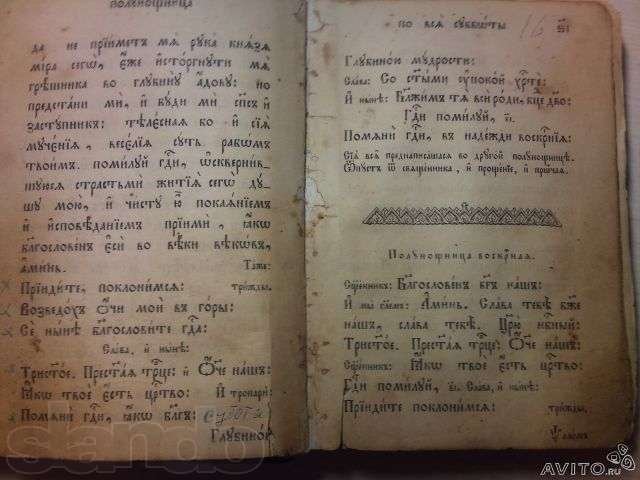 полꙋнощница
да не прїиметъ мѧ рꙋка кнѧзѧ
мїра сегѡ̀, є҆́же и҆сто́ргнꙋти мѧ
грѣ́шника во глꙋбинꙋ̀ а҆́довꙋ: но
предста́ни ми, и҆ бꙋ́ди ми сп҃съ и҆
застꙋ́пникъ: тѣле́снаѧ бо и҆ сїѧ̑
мꙋчє́нїѧ, весє́лїѧ сꙋть рабѡ́мъ
твои̑мъ. поми́лꙋй гдⷭ҇и, ѡ҆скверни́в-
шꙋюсѧ страстьмѝ житїѧ̀ сегѡ̀ дꙋ́-
шꙋ мою̀, и҆ чи́стꙋ ю҆̀ покаѧ́нїемъ
и҆ и҆сповѣ́данїемъ прїимѝ, ꙗ҆́кѡ
благослове́нъ є҆сѝ во вѣ́ки вѣкѡ́въ,
а҆ми́нь. Та́же:
Прїиди́те, поклони́мсѧ: три́жды.
Возведо́хъ ѻ҆́чи моѝ въ го́ры:
Сѐ ны́нѣ благослови́те гдⷭ҇а:
Сла́ва, и҆ ны́нѣ:
Трист҃о́е. Прест҃а́ѧ трⷪ҇це: и҆ Ѻ҆́че на́шъ:
Ꙗ҆́кѡ твоѐ є҆́сть црⷭ҇тво: И҆ тропарѝ:
Помѧнѝ гдⷭ҇и, ꙗ҆́кѡ бл҃гъ: Сꙋббота
Глꙋбино́ю
по всѧ̑ сꙋббѡ̑ты 16 ѕ҃і
Глꙋбино́ю мꙋ́дрости:
Сла́ва: Со ст҃ы́ми ᲂу҆поко́й хрⷭ҇тѐ:
И҆ ны́нѣ: Бл҃жи́мъ тѧ̀ всѝ ро́ди, бцⷣе дв҃о:
Гдⷭ҇и поми́лꙋй, в҃і.
Помѧнѝ гдⷭ҇и, въ наде́жди воскрⷭ҇нїѧ:
Сїѧ̑ всѧ̑ преднаписа́шасѧ во дрꙋго́й полꙋ́нощницѣ.
Ѿпꙋ́стъ ѿ сщ҃е́нника, и҆ проще́нїе, и҆ прѡ́чаѧ.
Полꙋ́нощница воскрⷭ҇наѧ.
Сщ҃е́нникъ: Благослове́нъ бг҃ъ на́шъ:
И҆ мы̀ глаго́лемъ: А҆ми́нь. Сла́ва тебѣ̀ бж҃е
на́шъ, сла́ва тебѣ̀. Цр҃ю̀ нбⷭ҇ный:
Трист҃о́е. Прест҃а́ѧ трⷪ҇це: Ѻ҆́че на́шъ:
Сщ҃е́нникъ: Ꙗ҆́кѡ твоѐ є҆́сть црⷭ҇тво:
Гдⷭ҇и поми́лꙋй, в҃і. Сла́ва, и҆ ны́нѣ:
Прїиди́те поклони́мсѧ: три́жды.
Ѱало́мъ
sando
AVITO.ru